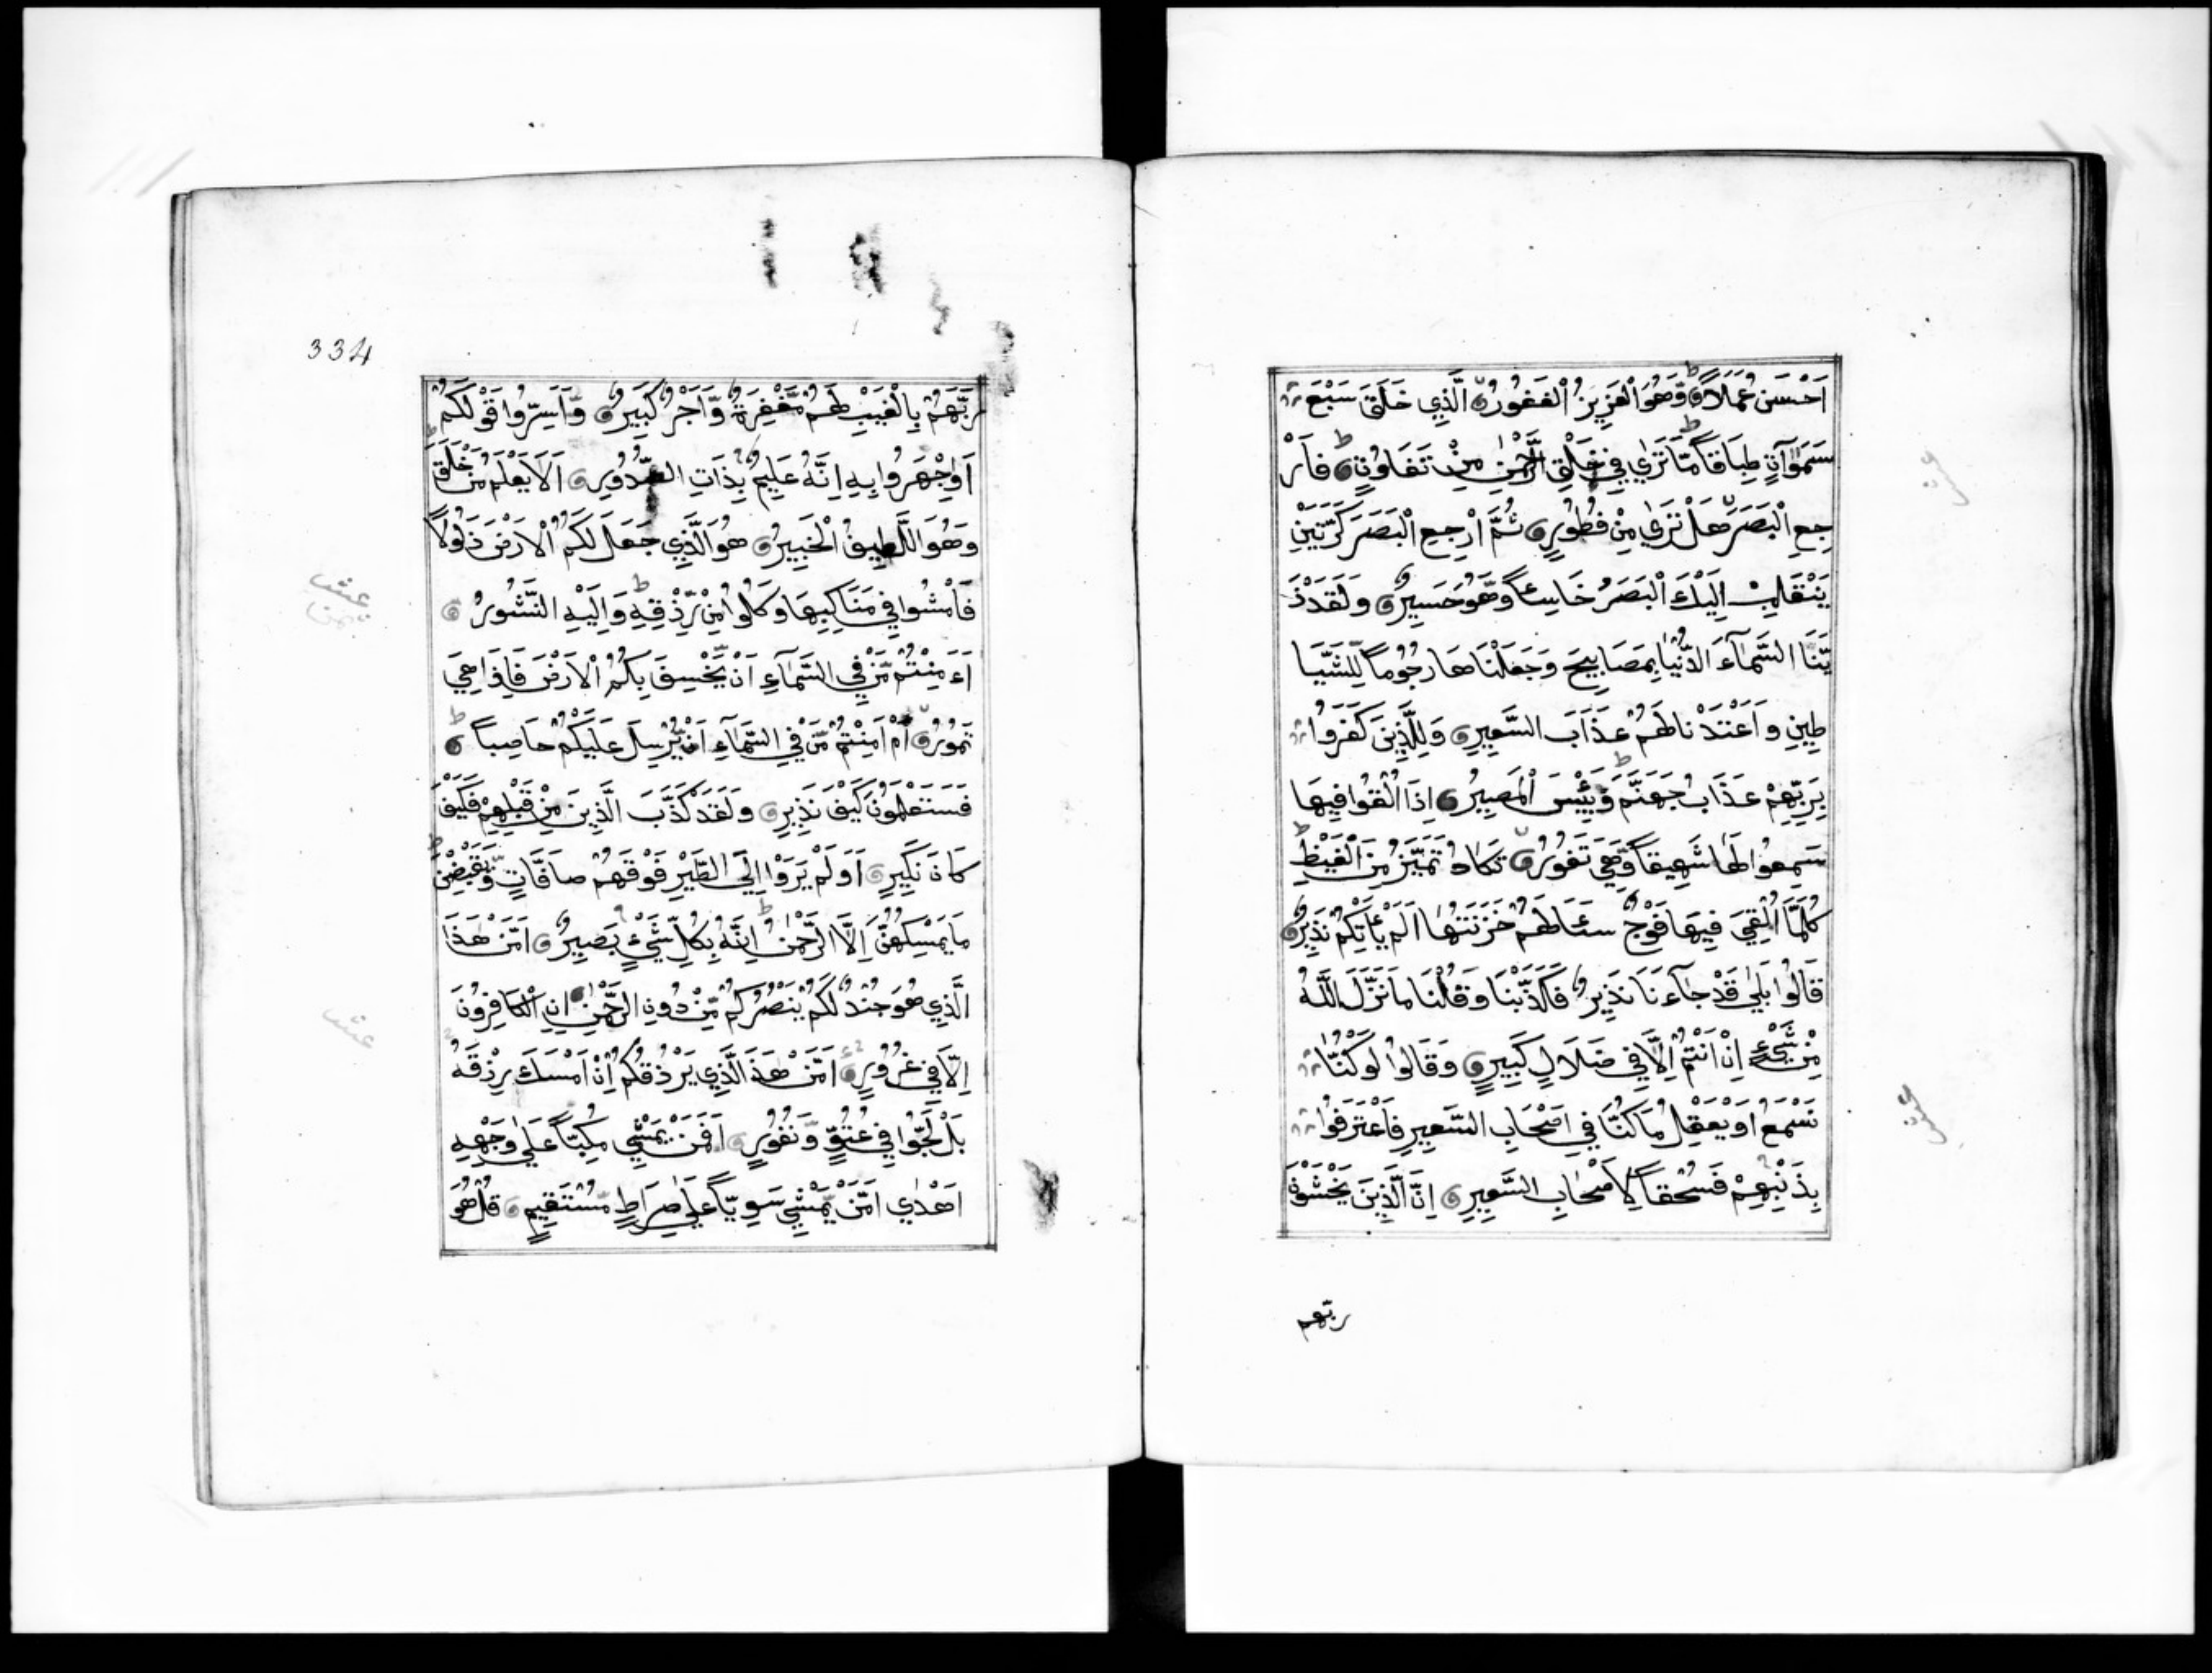 اَحْسَنُ عَمَلاً وَّهُوَ الْعَزِيْزُ الْغَفُوْرُ الَّذِي خَلَقَ سَبْعَ
سَمٰوٰاتٍ طِبَاقاً مَّا تَرٰي فِي خَلْقِ الرَّحْمٰنِ مِنْ تَفَاوُتٍ فَارْ
جِعِ الْبَصَرَ هَلْ تَرٰي مِنْ فُطُوْرٍ ثُمَّ ارْجِعِ الْبَصَرَ كَرَّتَيْنِ
يَنْقَلِبْ اِلَيْكَ الْبَصَرُ خَاسِئاً وَّهُوَ حَسِيْرٌ وَلَقَدْ زَ
يَّنَّا السَّمَآءَ الدُّنْيَا بِمَصَابِيْحَ وَجَعَلْنَاهَا رُجُوْماً لِّلشَّيَا
طِيْنِ وَاَعْتَدْنَا لَهُمْ عَذَابَ السَّعِيْرِ وَلِلَّذِيْنَ كَفَرُوْا
بِرَبِّهِمْ عَذَابُ جَهَنَّمَ وَبِئْسَ الْمَصِيْرُ اِذَا اُلْقُوْا فِيْهَا
سَمِعُوْا لَهَا شَهِيْقاً وَّهِيَ تَفُوْرُ تَكَادُ تَمَيَّزُ مِنَ الْغَيْظِ
كُلَّمَا اُلْقِيَ فِيْهَا فَوْجٌ سَئَالَهُمْ خَزَنَتُهَا اَلَمْ يَأْتِكُمْ نَذِيْرٌ
قَالُوْا بَلٰي قَدْ جَآءَنَا نَذِيْرٌ فَكَذَّبْنَا وَقُلْنَا مَا نَزَّلَ اللّٰهُ
مِنْ شَيْءٍ اِنْ اَنْتُمْ اِلَّا فِي ضَلَالٍ كَبِيْرٍ وَقَالُوْا لَوْ كُنَّا
نَسْمَعُ اَوْ نَعْقِلُ مَا كُنَّا فِي اَصْحَابِ السَّعِيْرِ فَاعْتَرَفُوْا
بِذَنْبِهِمْ فَسُحْقاً لِاَصْحَابِ السَّعِيْرِ اِنَّ الَّذِيْنَ يَخْشَوْنَ
ربّهم
334
رَبَّهُمْ بِالْغَيْبِ لَهُمْ مَّغْفِرَةٌ وَّاَجْرٌ كَبِيْرٌ وَاَسِرُّوْا قَوْلَكُمْ
اَوِاجْهَرُوْا بِهِ اِنَّهُ عَلِيْمٌ بِذَاتِ الصُّدُوْرِ اَلَا يَعْلَمُ مَنْ خَلَقَ
وَهُوَ اللَّطِيْفُ الْخَبِيْرُ هُوَ الَّذِي جَعَلَ لَكُمُ الْاَرْضَ ذَلُوْلاً
فَامْشُوْا فِي مَنَاكِبِهَا وَكُلُوْا مِنْ رِّزْقِهِ وَاِلَيْهِ النُّشُوْرُ
ءَاَمِنْتُمْ مَّنْ فِي السَّمَآءِ اَنْ يَّخْسِفَ بِكُمُ الْاَرْضَ فَاِذَا هِيَ
تَمُوْرُ اَمْ اَمِنْتُمْ مَّنْ فِي السَّمَآءِ اَنْ يُّرْسِلَ عَلَيْكُمْ حَاصِباً
فَسَتَعْلَمُوْنَ كَيْفَ نَذِيْرِ وَلَقَدْ كَذَّبَ الَّذِيْنَ مِنْ قَبْلِهِمْ فَكَيْفَ
كَانَ نَكِيْرِ اَوَلَمْ يَرَوْا اِلَي الطَّيْرِ فَوْقَهُمْ صَافَّاتٍ وَّيَقْبِضْنَ
مَا يُمْسِكُهُنَّ اِلَّا الرَّحْمٰنُ اِنَّهُ بِكُلِّ شَيْءٍ بَصِيْرٌ اَمَّنْ هٰذَا
الَّذِي هُوَ جُنْدٌ لَكُمْ يَنْصُرُكُمْ مِّنْ دُوْنِ الرَّحْمٰنِ اِنِ الْكَافِرُوْنَ
اِلَّا فِي غُرُوْرٍ اَمَّنْ هٰذَا الَّذِي يَرْزُقُكُمْ اِنْ اَمْسَكَ رِزْقَهُ
بَلْ لَجُّوْا فِي عُتُوٍّ وَّنُفُوْرٍ اَفَمَنْ يَمْشِي مُكِبّاً عَلٰي وَجْهِهِ
اَهْدٰي اَمَّنْ يَّمْشِي سَوِيّاً عَلٰي صِرَاطٍ مُّسْتَقِيْمٍ قُلْ هُوَ